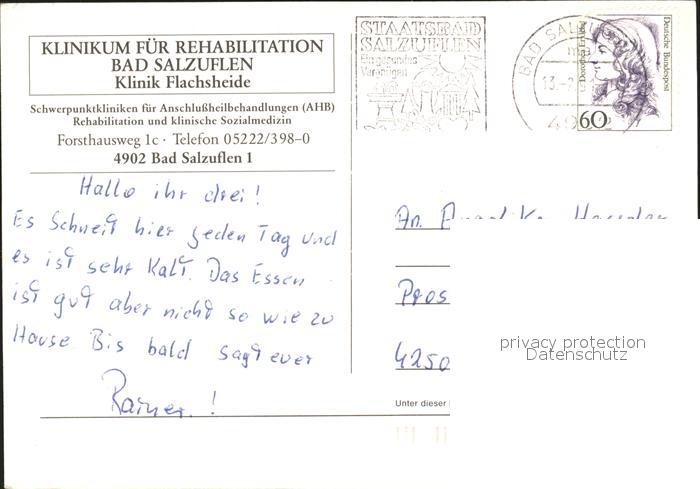 KLINIKUM FÜR REHABILITATION
BAD SALZUFLEN
Klinik Flachsheide
Schwerpunktkliniken für Anschlußheilbehandlungen (AHB)
Rehabilitation und klinische Sozialmedizin
Forsthausweg 1c · Telefon 05222/398-0
4902 Bad Salzuflen 1
Hallo ihr drei!
Es Schneit hier jeden Tag und
es ist sehr Kalt. Das Essen
ist gut aber nicht so wie zu
Hause Bis bald sagt euer
Rainer.!
STAATSBAD
SALZUFLEN
Ein gesundes
Vergnügen
BAD SALZUFLEN
13.-2
490
Deutsche Bundespost
60
An
Pros
4250
privacy protection
Datenschutz
Unter dieser